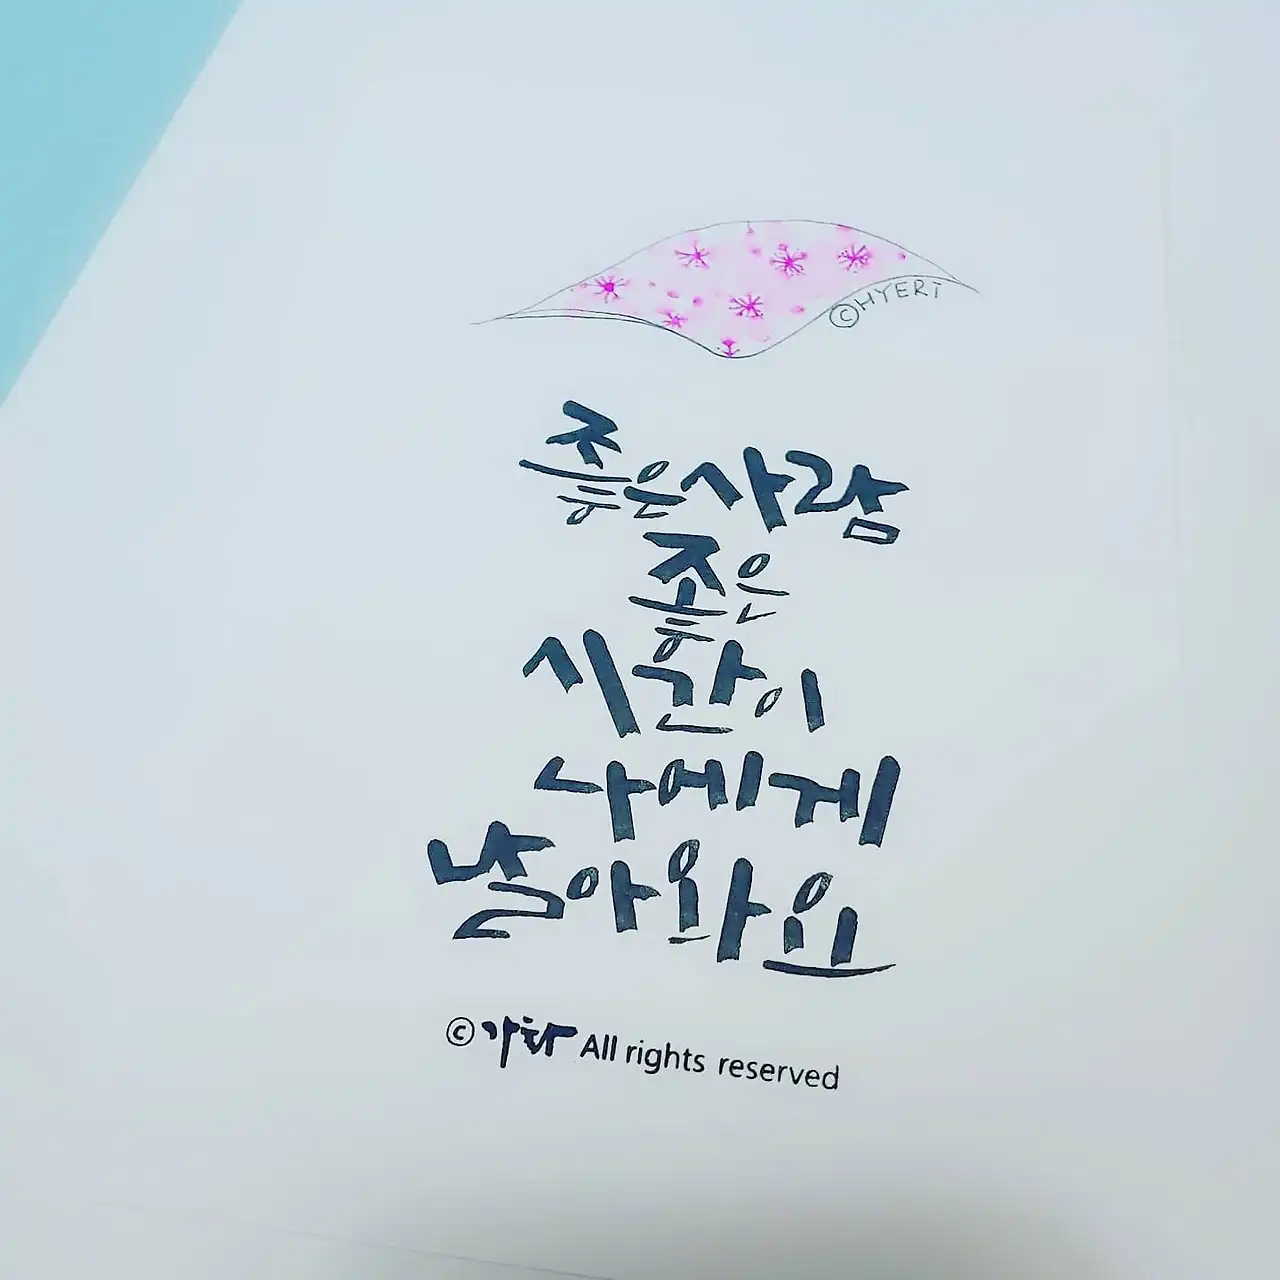 ©HYERI
좋은사람
좋은
시간이
나에게
날아와요
© All rights reserved